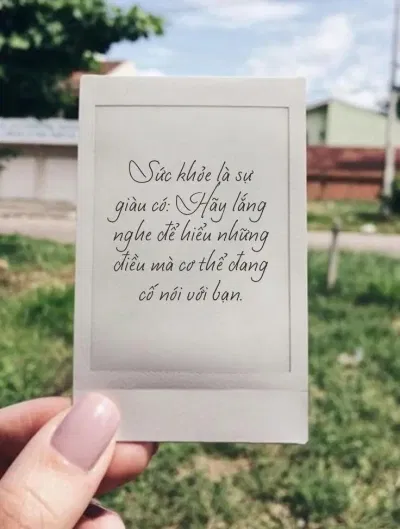 Sức khỏe là sự
giàu có. Hãy lắng
nghe để hiểu những
điều mà cơ thể đang
cố nói với bạn.